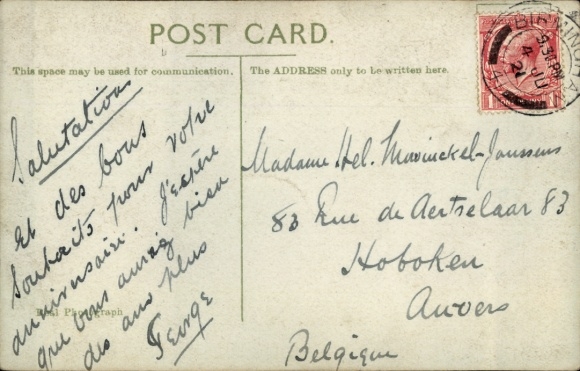 POST CARD.
This space may be used for communication.
The ADDRESS only to be written here.
BIRMINGHA
9.30 PM
4 JU
21
Salutations
et des bons
souhaits pour votre
anniversaire. J'espère
que vous aurez bien
des ans plus
George
Real Photograph
Madame Hel. Mavinckel-Janssens
83 Rue de Aertselaar 83
Hoboken
Anvers
Belgique